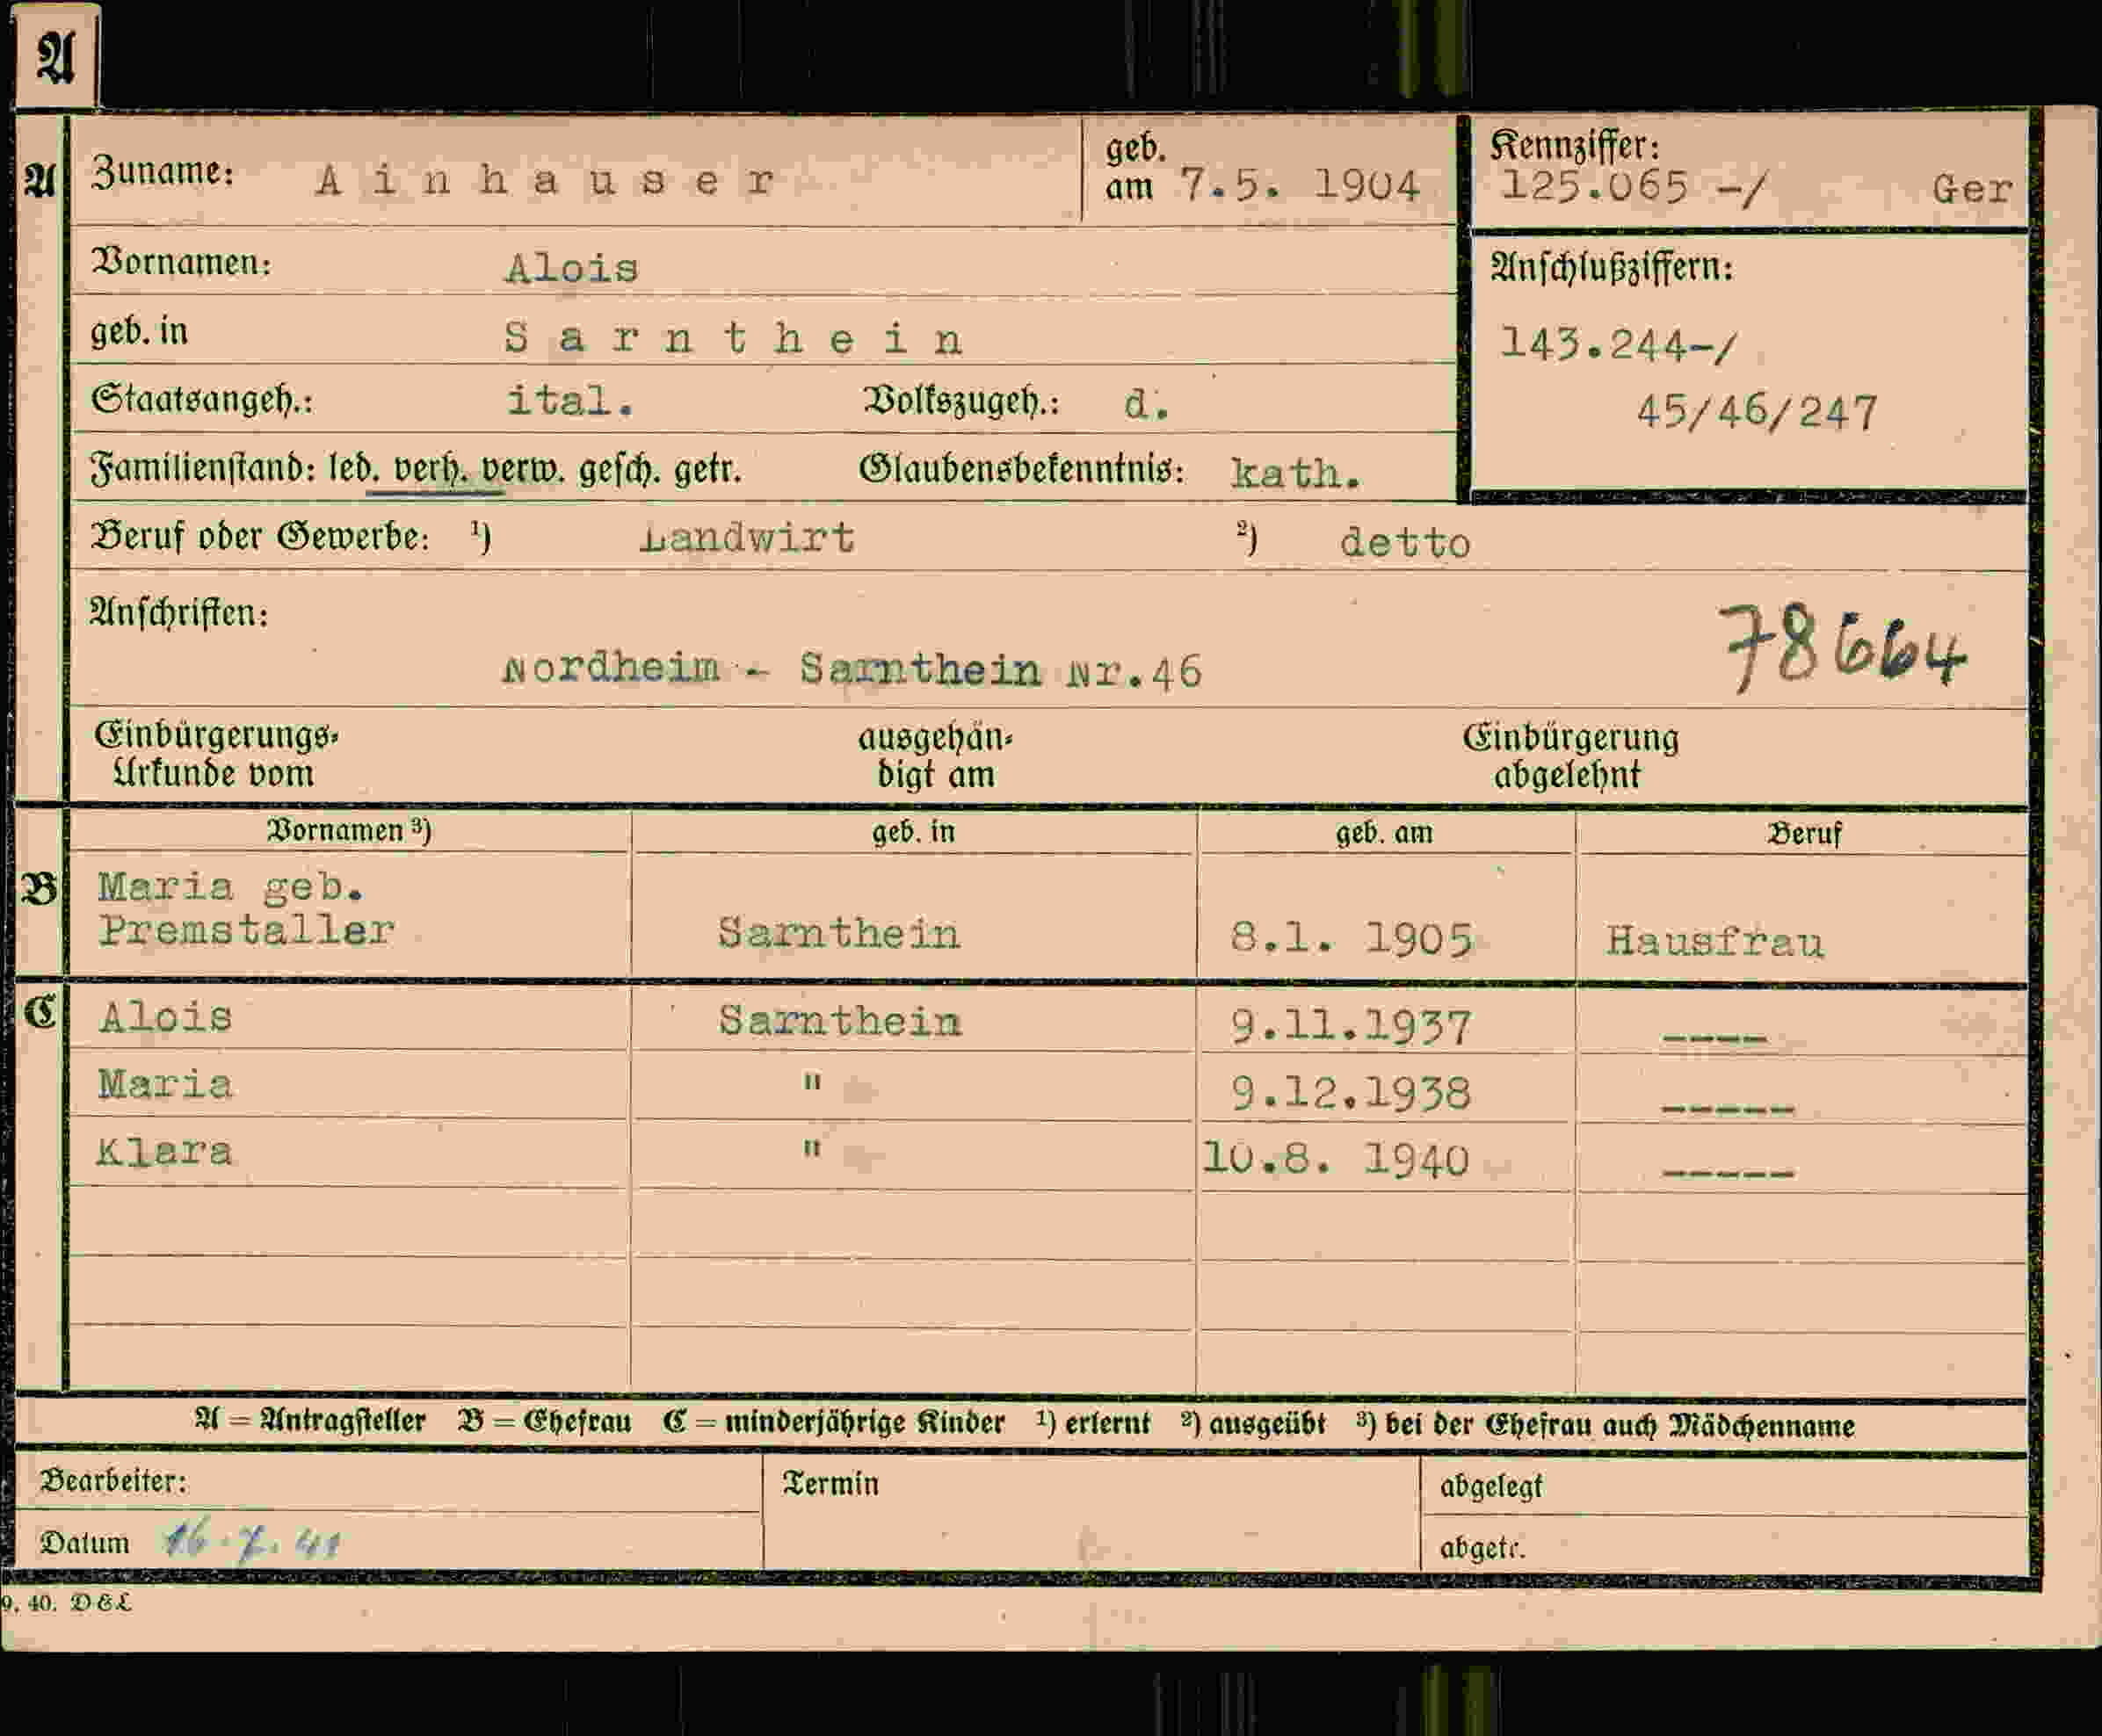 A
A Zuname: Ainhauser geb. am 7.5. 1904 Kennziffer: 125.065 -/ Ger
Vornamen: Alois Anschlußziffern:
geb. in Sarnthein 143.244-/
Staatsangeh.: ital. Volkszugeh.: d. 45/46/247
Familienstand: led. verh. verw. gesch. getr. Glaubensbekenntnis: kath.
Beruf oder Gewerbe: ¹) Landwirt ²) detto
Anschriften: 78664
Nordheim - Sarnthein Nr.46
Einbürgerungs- ausgehän- Einbürgerung
Urkunde vom digt am abgelehnt
Vornamen ³) geb. in geb. am Beruf
B Maria geb.
Premstaller Sarnthein 8.1. 1905 Hausfrau
C Alois Sarnthein 9.11.1937 ----
Maria " 9.12.1938 -----
Klara " 10.8. 1940 -----
A = Antragsteller B = Ehefrau C = minderjährige Kinder ¹) erlernt ²) ausgeübt ³) bei der Ehefrau auch Mädchenname
Bearbeiter: Termin abgelegt
Datum 16.7.41 abgetr.
9. 40. DEL